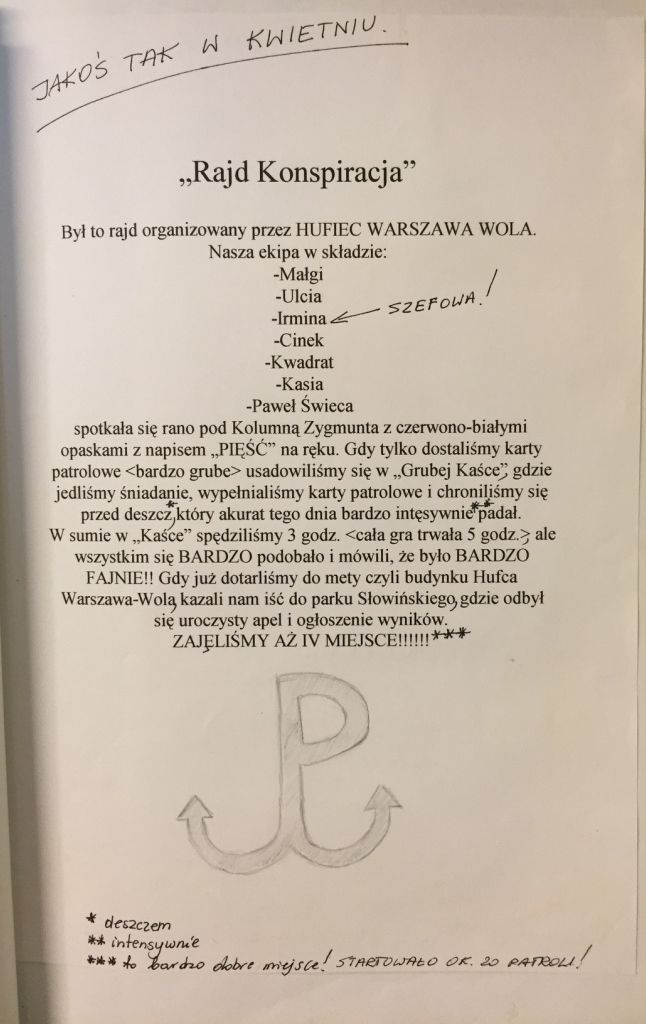 JAKOŚ TAK W KWIETNIU.
„Rajd Konspiracja”
Był to rajd organizowany przez HUFIEC WARSZAWA WOLA.
Nasza ekipa w składzie:
-Małgi
-Ulcia
-Irmina ← SZEFOWA!
-Cinek
-Kwadrat
-Kasia
-Paweł Świeca
spotkała się rano pod Kolumną Zygmunta z czerwono-białymi
opaskami z napisem „PIĘŚĆ” na ręku. Gdy tylko dostaliśmy karty
patrolowe <bardzo grube> usadowiliśmy się w „Grubej Kaśce”, gdzie
jedliśmy śniadanie, wypełnialiśmy karty patrolowe i chroniliśmy się
przed deszcz*, który akurat tego dnia bardzo intęsywnie** padał.
W sumie w „Kaśce” spędziliśmy 3 godz. <cała gra trwała 5 godz.>, ale
wszystkim się BARDZO podobało i mówili, że było BARDZO
FAJNIE!! Gdy już dotarliśmy do mety czyli budynku Hufca
Warszawa-Wola, kazali nam iść do parku Słowińskiego, gdzie odbył
się uroczysty apel i ogłoszenie wyników.
ZAJĘLIŚMY AŻ IV MIEJSCE!!!!!!***
* deszczem
** intensywnie
*** to bardzo dobre miejsce! STARTOWAŁO OK. 20 PATROLI!